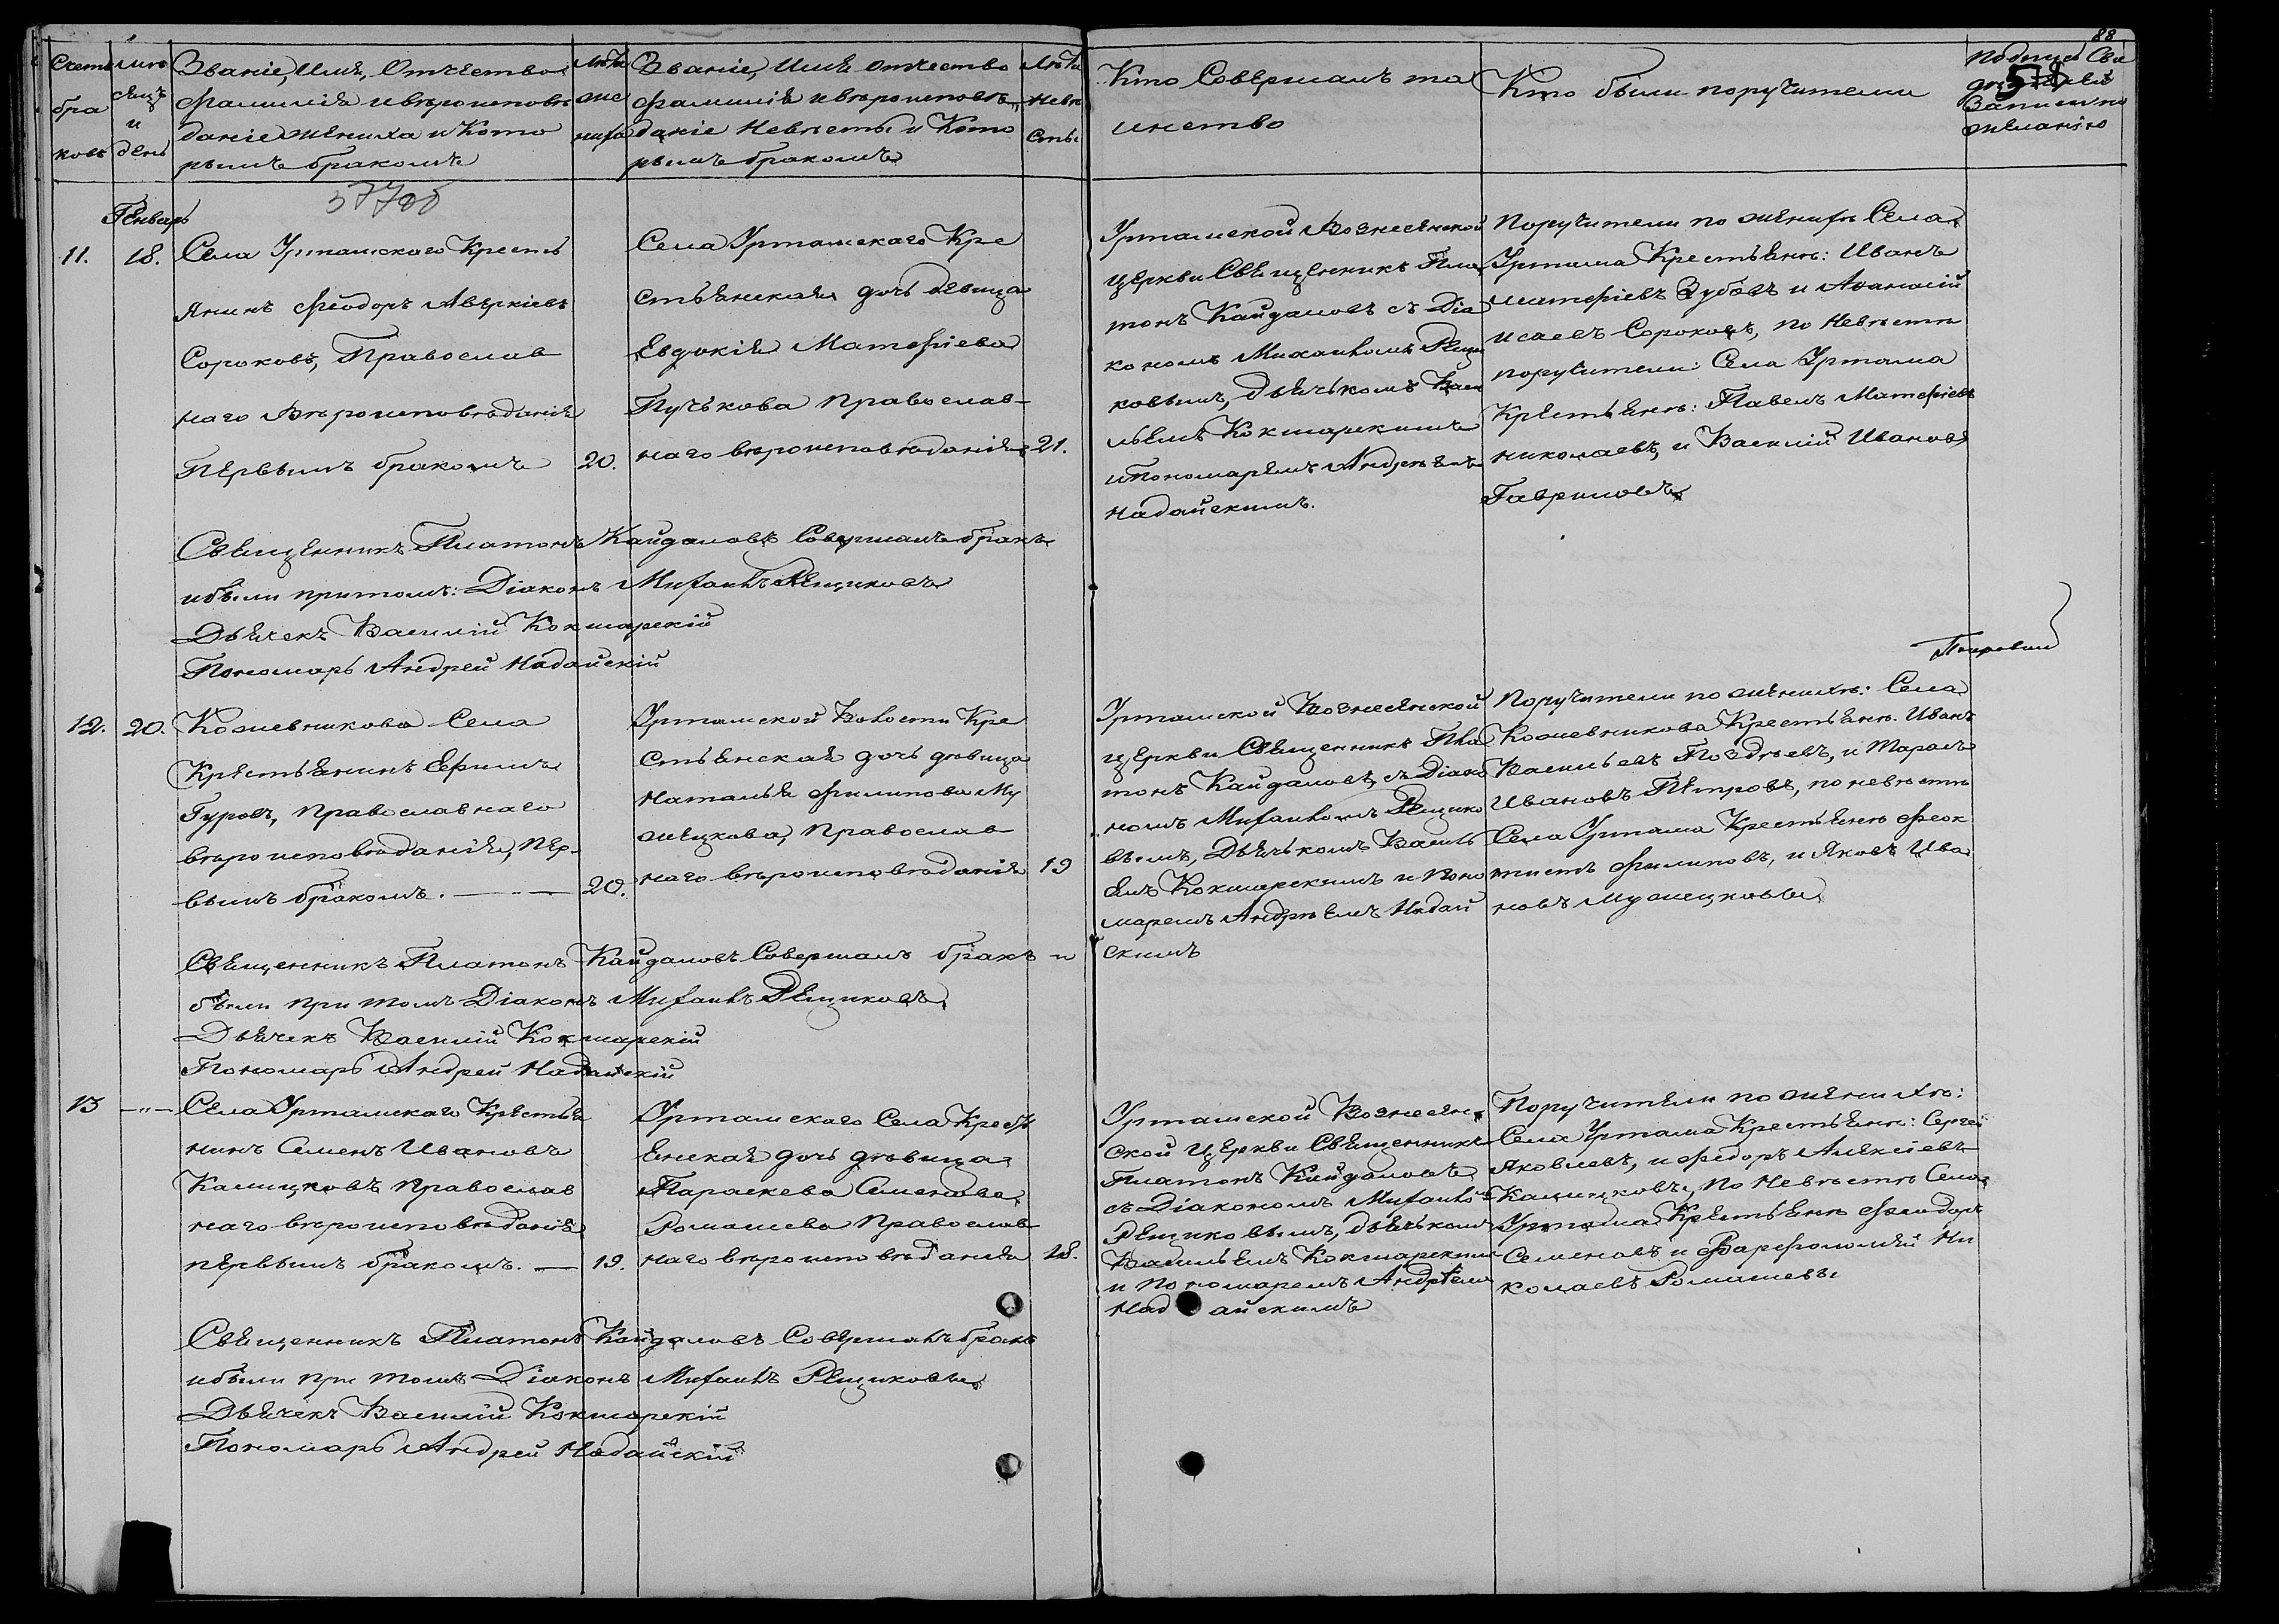 88
58
Счетъ бра ковъ
мѣ сяцъ и день
Званіе, Имя, Отчество
фамилія и вѣроисповѣ
даніе жениха и Кото
рымъ бракомъ
Лѣта же ниха
Званіе, Имя отчество
фамилія и вѣроисповѣ
даніе Невѣсты и Кото
рымъ бракомъ
Лѣта Невѣ сты
Кто Совершалъ та
инство
Кто были поручители
подписи Сви
дѣтелей
Записи по
желанію
3770б
Генварь
11.
18.
Села Уртамскаго Кресть
янинъ Феодоръ Аверкіевъ
Сороковъ, Православ
наго Вѣроисповѣданія
Первымъ бракомъ
20.
Села Уртамскаго Кре
стьянская дочь девица
Евдокія Матфіева
Пучькова православ-
наго вѣроисповѣданія
21.
Уртамской Вознесенской
церкви Священникъ Пла
тонъ Кайдаловъ съ Діа
кономъ Михаиломъ Рещи
ковымъ, дьячькомъ Васи
льемъ Кокшарскимъ
и Пономаремъ Андреемъ
Надайскимъ.
Поручители по женихѣ Села
Уртама Крестьяне: Иванъ
Матфіевъ Зубовъ и Афанасій
Исаевъ Сороковъ, по Невѣстѣ
поручители: Села Уртама
Крестьяне: Павелъ Матфіевъ
Николаевъ, и Василій Ивановъ
Гавриловъ
Священникъ Платонъ Кайдаловъ Совершалъ бракъ
и были притомъ: Діаконъ Михаилъ Рещиковъ
Дьячекъ Василій Кокшарскій
Пономарь Андрей Надайскій
12.
20.
Кожевникова Села
Крестьянинъ Ефимъ
Гуровъ, православнаго
вѣроисповѣданія, пер-
вымъ бракомъ.
20.
Уртамской Волости Кре
стьянская дочь дѣвица
Наталья Филипова Му
жецкова, православ
наго вѣроисповѣданія
19
Уртамской Вознесенской
церкви Священникъ Пла
тонъ Кайдаловъ, съ Діако
номъ Михаиломъ Рещико
вымъ, Дьячькомъ Василь
емъ Кокшарскимъ и поно
маремъ Андрѣемъ Надай
скимъ
Поручители по женихѣ: Села
Кожевникова Крестьяне: Иванъ
Васильевъ Поздѣевъ, и Тарасъ
Ивановъ Петровъ, по невѣстѣ
Села Уртама Крестьяне Феок
тистъ Филиповъ, и Яковъ Ива
новъ Мужецковы
Священникъ Платонъ Кайдаловъ Совершалъ бракъ и
были при томъ Діаконъ Михаилъ Рещиковъ
Дьячекъ Василій Кокшарскій
Пономарь Андрей Надайскій
13
—"—
Села Уртамскаго Крестья
нинъ Семенъ Ивановъ
Калицковъ православ
наго вѣроисповѣданія
первымъ бракомъ.
19.
Уртамскаго Села Кресть
янская дочь дѣвица
Параскева Семенова
Ромашева православ
наго вѣроисповѣданія
18.
Уртамской Вознесен
ской Церкви Священникъ
Платонъ Кайдаловъ
съ Діакономъ Михаиломъ
Рещиковымъ, дьячькомъ
Васильемъ Кокшарскимъ
и Пономаремъ Андрѣемъ
Надайскимъ
Поручители по женихѣ:
Села Уртама Крестьяне: Сергей
Яковлевъ, и Федоръ Алексіевъ
Калицковы, по Невѣстѣ Села
Уртама Крестьяне Феодоръ
Семеновъ и Варфоломей Ни
колаевъ Ромашевы
Священникъ Платонъ Кайдаловъ Совершалъ бракъ
и были при томъ Діаконъ Михаилъ Рещиковъ
Дьячекъ Василій Кокшарскій
Пономарь Андрей Надайскій